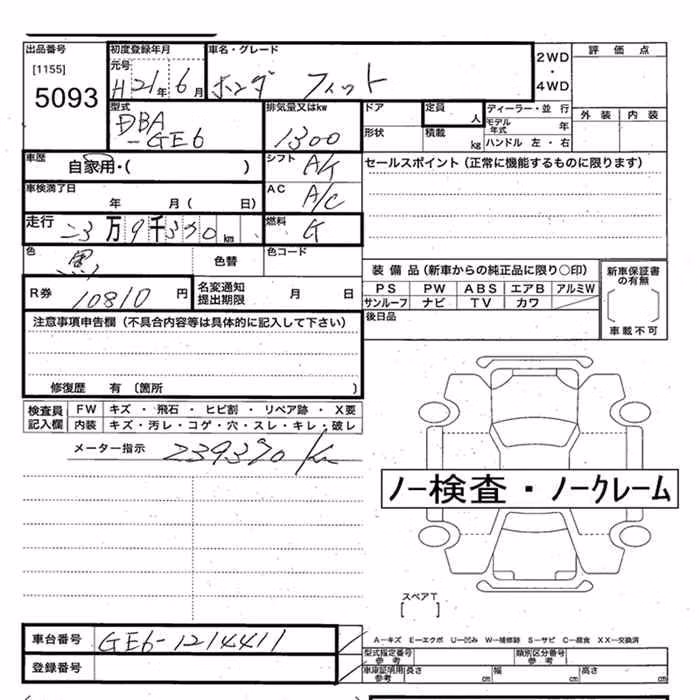 出品番号 初度登録年月 車名・グレード 2WD・4WD 評価点
[1155] 元号
5093 H21年6月 ホンダ フィット
型式 排気量又はkw ドア 定員 人 ディーラー・並行 外装 内装
DBA-GE6 1300 形状 積載 kg モデル年式 年
ハンドル 左・右
車歴 自家用・( ) シフト A/T セールスポイント(正常に機能するものに限ります)
車検満了日 年 月( 日) AC A/C
走行 23万9千320km 燃料 G
色 黒 色替 色コード 装備品(新車からの純正品に限り○印) 新車保証書の有無
R券 10810円 名変通知提出期限 月 日 PS PW ABS エアB アルミW
サンルーフ ナビ TV カワ
( )
注意事項申告欄(不具合内容等は具体的に記入して下さい) 後日品 車載不可
修復歴 有(箇所 )
検査員記入欄 FW キズ・飛石・ヒビ割・リペア跡・X要
内装 キズ・汚レ・コゲ・穴・スレ・キレ・破レ
メーター指示 239320 Km
ノー検査・ノークレーム
スペアT
[ ]
車台番号 GE6-1214411
A-キズ E-エクボ U-凹み W-補修跡 S-サビ C-腐食 XX-交換済
登録番号 型式指定番号 参考 類別区分番号 参考
車庫証明用 参考 長さ cm 幅 cm 高さ cm